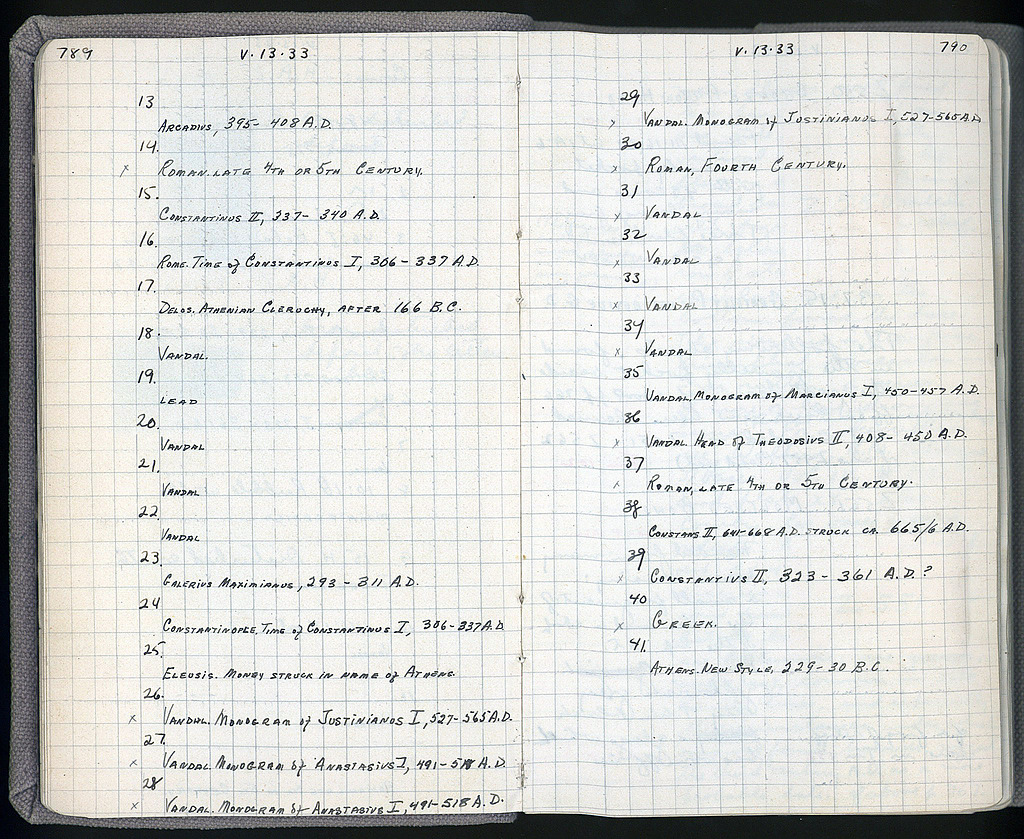 789 V.13.33
13
Arcadius, 395-408 A.D.
14.
x Roman. Late 4th or 5th Century.
15.
Constantinus II, 337-340 A.D.
16.
Rome. Time of Constantinus I, 306-337 A.D.
17.
Delos. Athenian Clerochy, after 166 B.C.
18.
Vandal.
19.
Lead
20.
Vandal
21.
Vandal
22.
Vandal
23.
Galerius Maximianus, 293-311 A.D.
24
Constantinople, Time of Constantinus I, 306-337 A.D.
25.
Eleusis. Money struck in name of Athens.
26.
x Vandal. Monogram of Justinianos I, 527-565 A.D.
27.
x Vandal. Monogram of Anastasius I, 491-518 A.D.
28
x Vandal. Monogram of Anastasius I, 491-518 A.D.
V.13.33 790
29
x Vandal. Monogram of Justinianus I, 527-565 A.D
30
x Roman, Fourth Century.
31
x Vandal
32
x Vandal
33
x Vandal
34
x Vandal
35
Vandal. Monogram of Marcianus I, 450-457 A.D.
36
x Vandal. Head of Theodosius II, 408-450 A.D.
37
x Roman, late 4th or 5th Century.
38
Constans II, 641-668 A.D. struck ca. 665/6 A.D.
39
x Constantius II, 323-361 A.D.?
40
x Greek.
41.
Athens. New Style, 229-30 B.C.